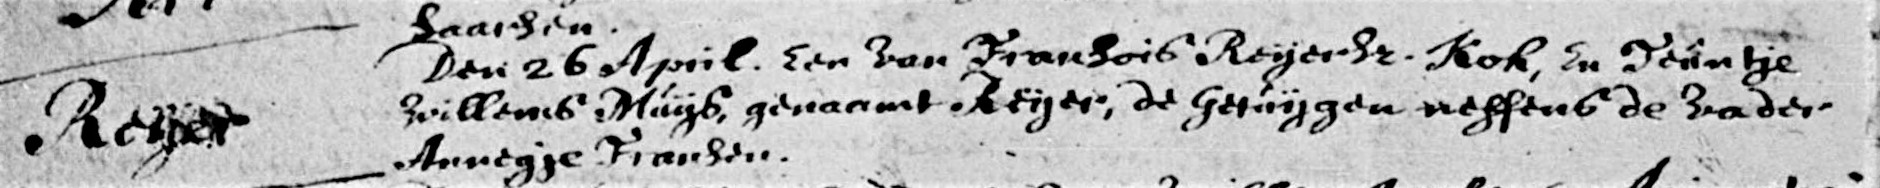 Saarsen.
Den 26 April. Een van Fransois Reyersz. Kok, en Teuntje
Reijer
Willems Muys, genaamt Reijer, de Getuijgen neffens de Vader
Annegje Fransen.